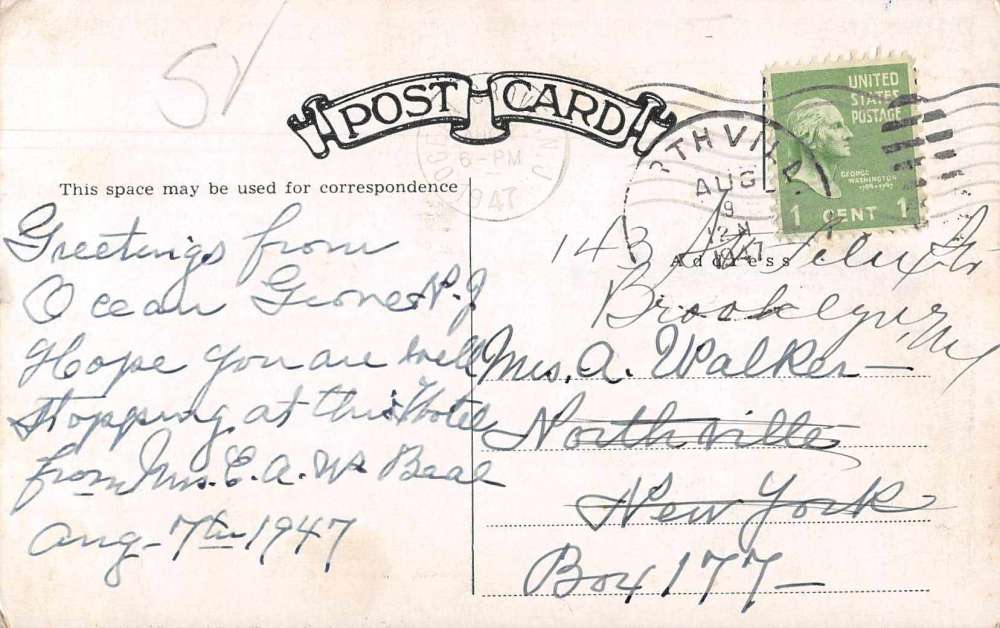 5
POST CARD
UNITED
STATES
POSTAGE
6-PM
1947
N.J.
THVILL
AUG
9
12 M
1947
GEORGE
WASHINGTON
1789-1797
1 CENT 1
This space may be used for correspondence
Address
Greetings from
Ocean Grove N.J
Hope you are well
Stopping at this Hotel
from Mrs. E. A. Beal
Aug-7th-1947
143
Brooklyn, NY
Mrs. A. Walker—
Northville
New York
Box 177—